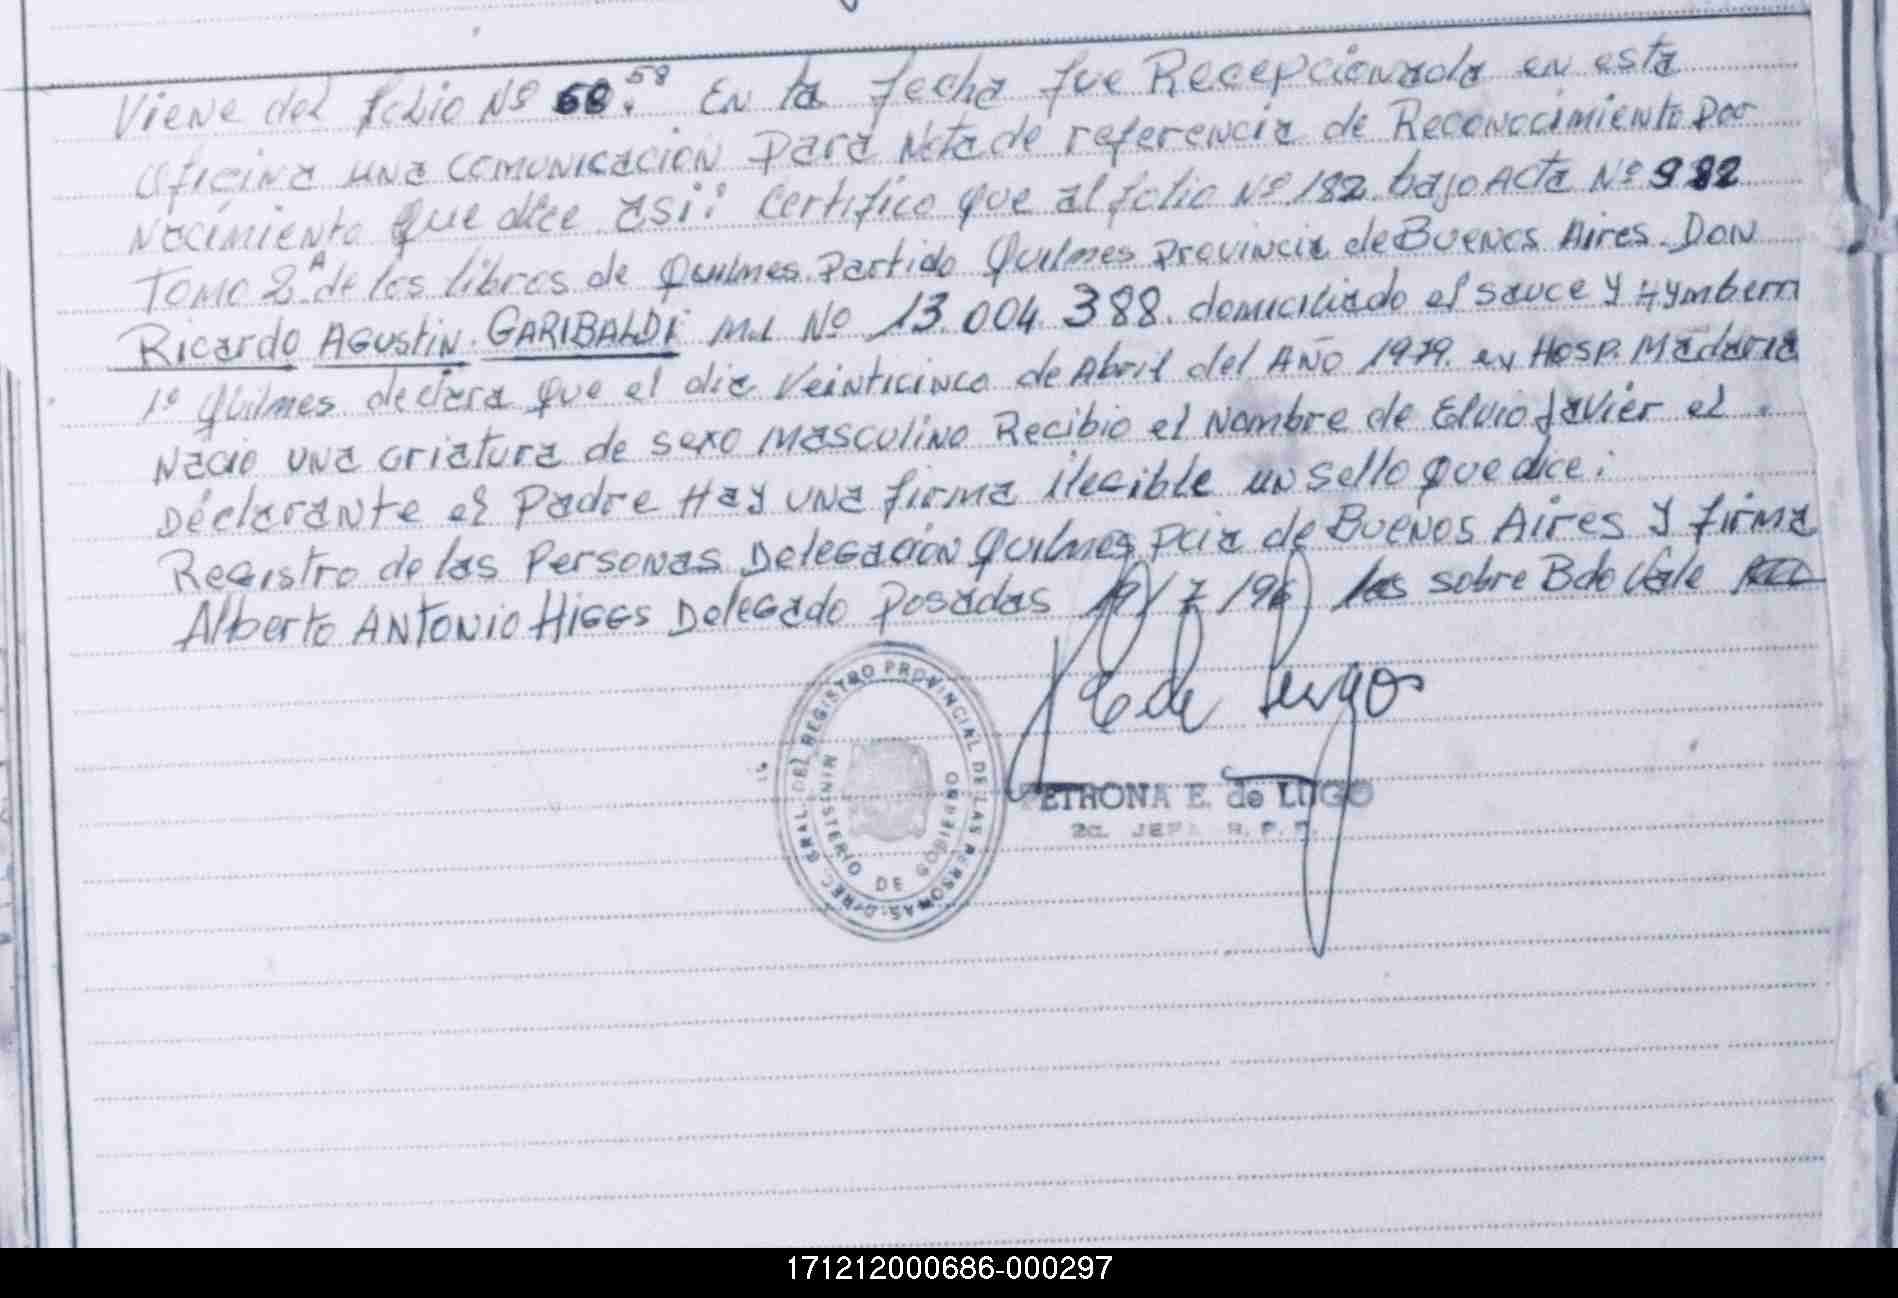 Viene del folio Nº 68. 58 En la fecha fue Recepcionada en esta
oficina una comunicación para Nota de referencia de Reconocimiento por
Nacimiento que dice así: Certifico que al folio Nº 182 bajo Acta Nº 982
Tomo 2A de los libros de Quilmes Partido Quilmes Provincia de Buenos Aires. Don
Ricardo Agustin GARIBALDI M.I Nº 13.004.388. domiciliado el sauce y
1º Quilmes declara que el día Veinticinco de Abril del Año 1979. en Hosp. Madaria
Nacio una criatura de sexo Masculino Recibio el Nombre de Elvio Javier el
Declarante es Padre Hay una firma ilegible un sello que dice:
Registro de las Personas Delegación Quilmes Pcia de Buenos Aires y firma
Alberto Antonio Higgs Delegado Posadas 19/7/96 las sobre Bdo Vale
E de Lugo
PETRONA E. de LUGO
2a. JEFA R. P. P.
DIREC. GRAL. DEL REGISTRO PROVINCIAL DE LAS PERSONAS
MINISTERIO DE GOBIERNO
171212000686-000297